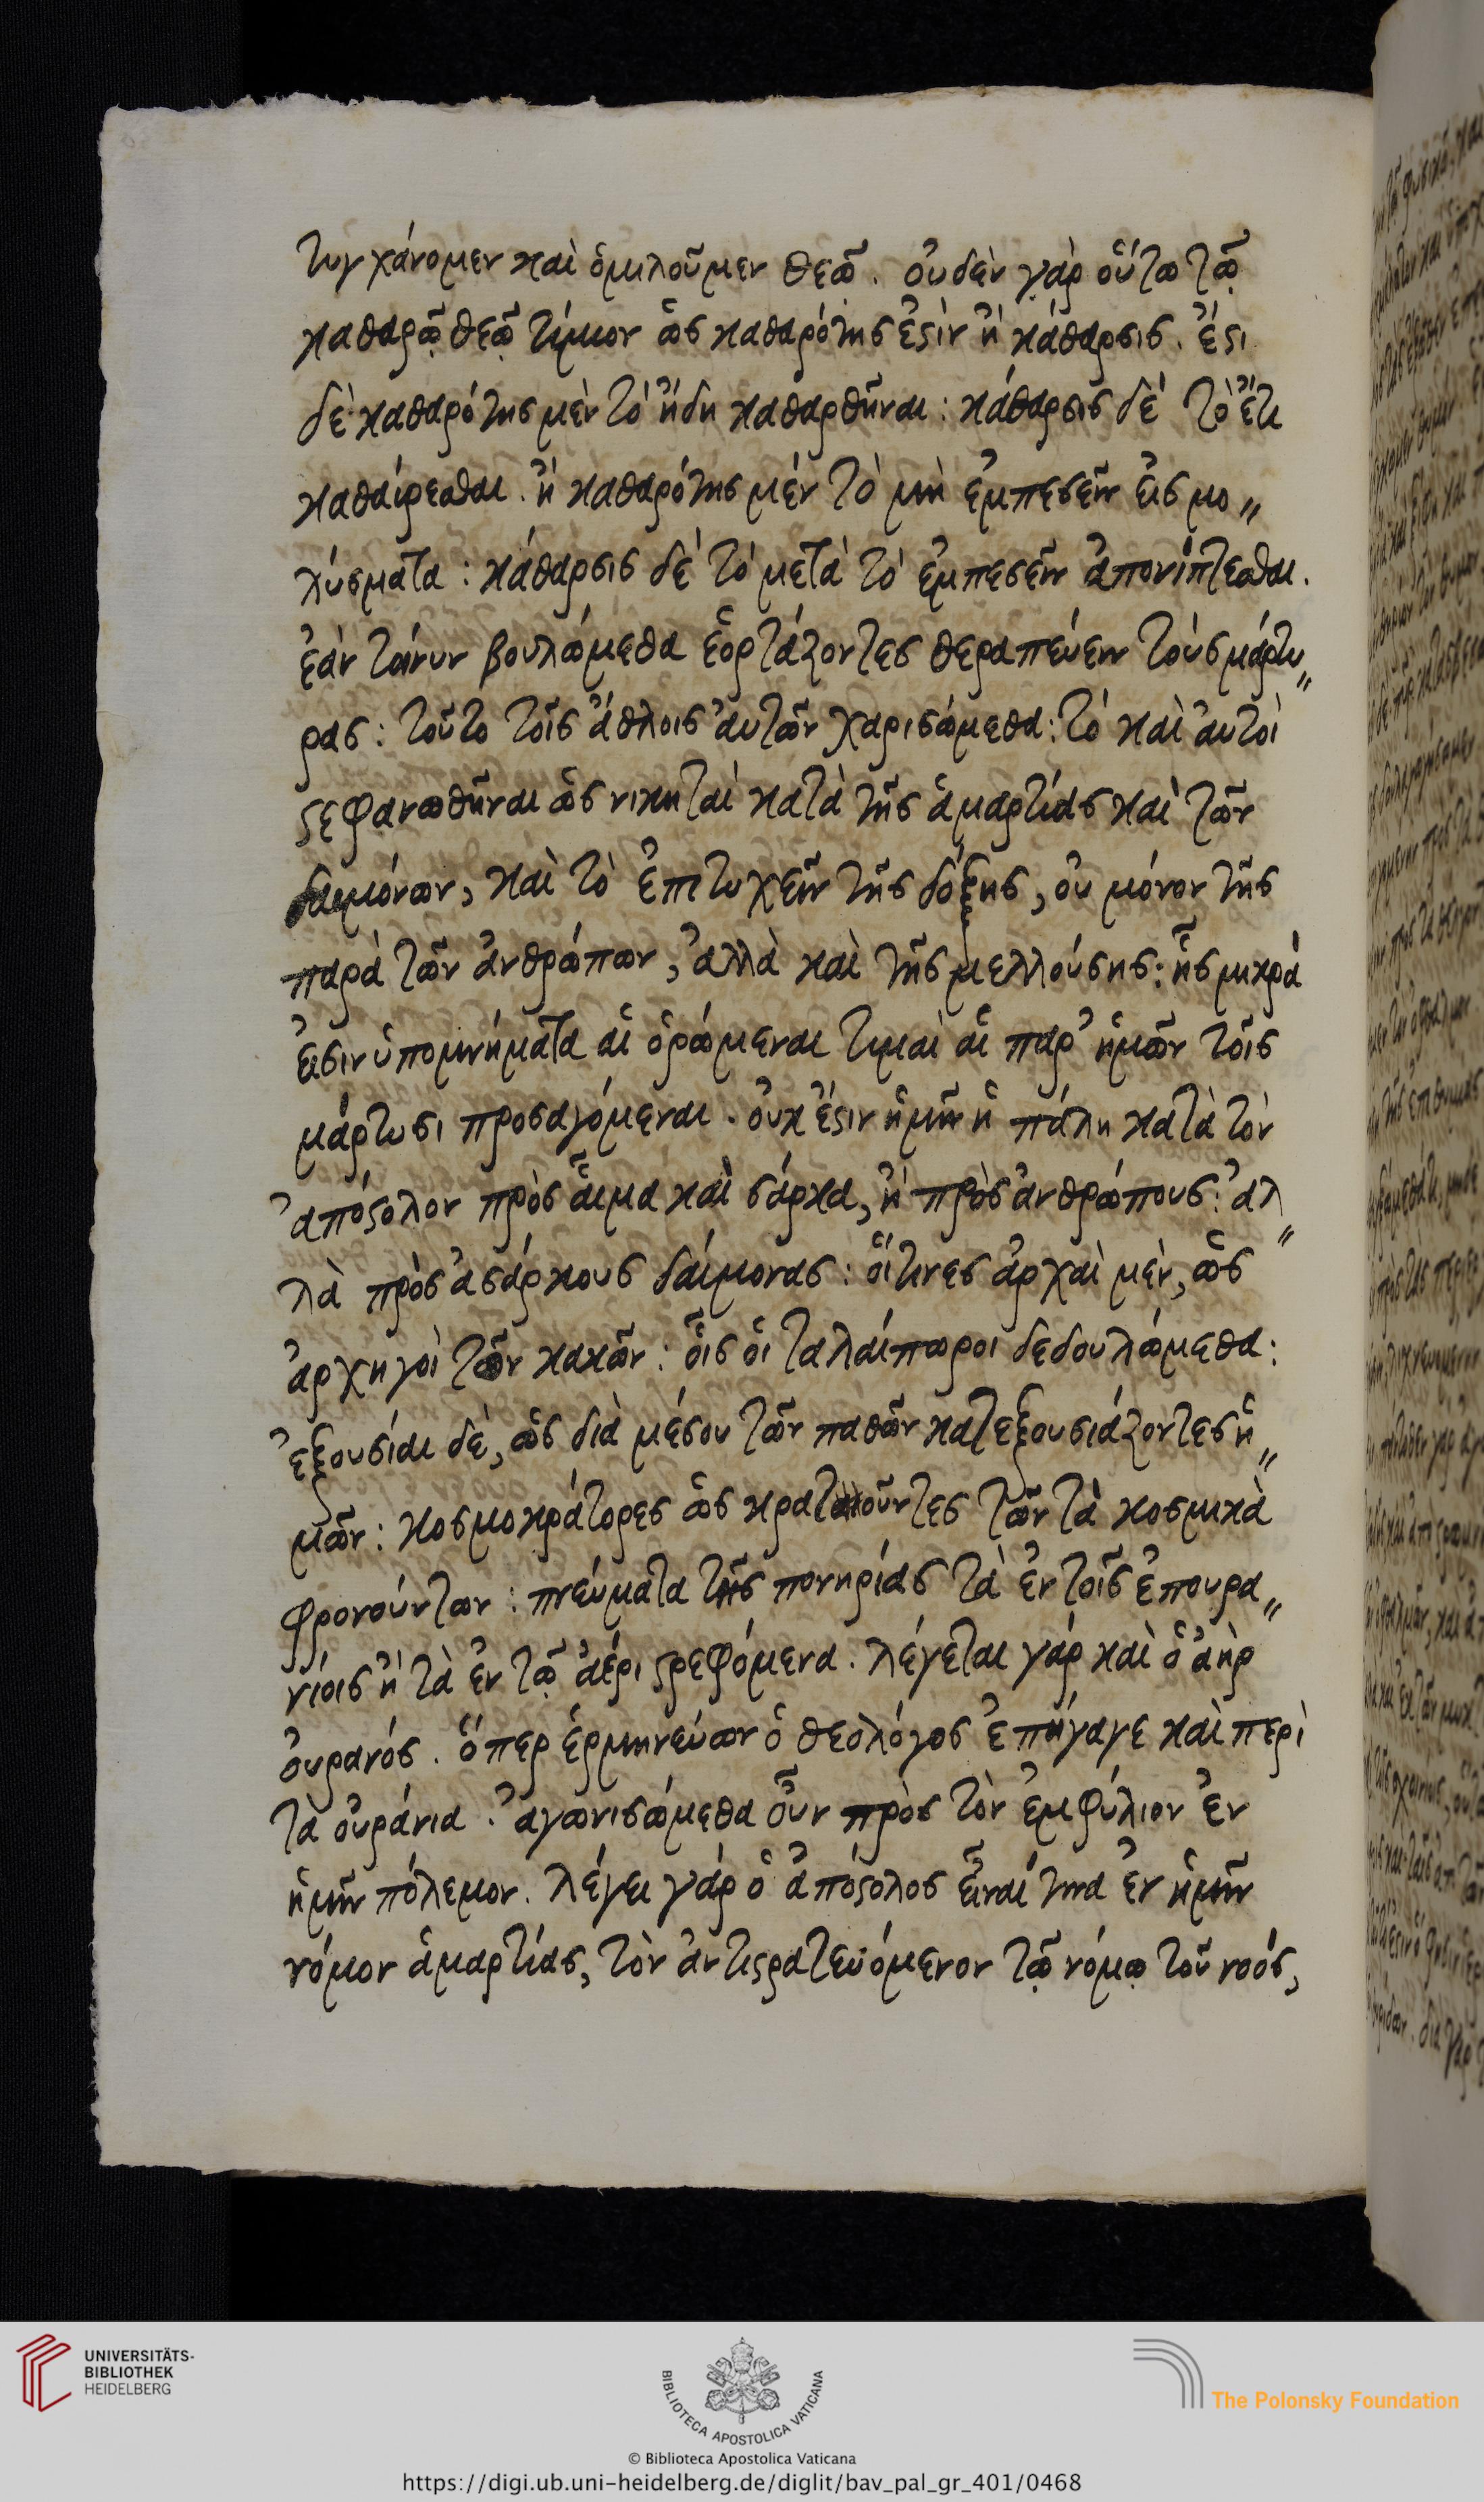 τυγχάνομεν καὶ ὁμιλοῦμεν θεῷ. οὐδὲν γὰρ οὕτω τῷ
καθαρῷ θεῷ τίμιον ὡς καθαρότης ἐστὶν ἢ κάθαρσις. ἔστι
δὲ καθαρότης μὲν τὸ ἤδη καθαρθῆναι: κάθαρσις δὲ τὸ ἔτι
καθαίρεσθαι. ἢ καθαρότης μὲν τὸ μὴ ἐμπεσεῖν εἰς μο〃
λύσματα: κάθαρσις δὲ τὸ μετὰ τὸ ἐμπεσεῖν ἀπονίπτεσθαι.
ἐὰν τοίνυν βουλώμεθα ἑορτάζοντες θεραπεύειν τοὺς μάρτυ〃
ρας: τοῦτο τοῖς ἄθλοις αὐτῶν χαρισώμεθα: τὸ καὶ αὐτοὶ
στεφανωθῆναι ὡς νικηταὶ κατὰ τῆς ἁμαρτίας καὶ τῶν
δαιμόνων, καὶ τὸ ἐπιτυχεῖν τῆς δόξης, οὐ μόνον τῆς
παρὰ τῶν ἀνθρώπων, ἀλλὰ καὶ τῆς μελλούσης: ἧς μικρὰ
εἰσιν ὑπομνήματα αἱ ὁρώμεναι τιμαὶ αἱ παρ' ἡμῶν τοῖς
μάρτυσι προσαγόμεναι. οὐκ ἔστιν ἡμῖν ἡ πάλη κατὰ τὸν
ἀπόστολον πρὸς αἷμα καὶ σάρκα, ἢ πρὸς ἀνθρώπους: ἀλ〃
λὰ πρὸς ἀσάρκους δαίμονας: οἵτινες ἀρχαὶ μὲν, ὡς
ἀρχηγοὶ τῶν κακῶν: οἷς οἱ ταλαίπωροι δεδουλώμεθα:
ἐξουσίαι δὲ, ὡς διὰ μέσου τῶν παθῶν κατεξουσιάζοντες ἡ〃
μῶν: κοσμοκράτορες ὡς κρατοῦντες τῶν τὰ κοσμικὰ
φρονούντων: πνεύματα τῆς πονηρίας τὰ ἐν τοῖς ἐπουρα〃
νίοις ἢ τὰ ἐν τῷ ἀέρι στρεφόμενα. λέγεται γάρ καὶ ὁ ἀὴρ
οὐρανός. ὅπερ ἑρμηνεύων ὁ θεολόγος ἐπήγαγε καὶ περὶ
τὰ οὐράνια. ἀγωνισώμεθα οὖν πρὸς τὸν ἐμφύλιον ἐν
ἡμῖν πόλεμον. λέγει γάρ ὁ ἀπόστολος εἶναί τινα ἐν ἡμῖν
νόμον ἁμαρτίας, τὸν ἀντιστρατευόμενον τῷ νόμῳ τοῦ νοός,
UNIVERSITÄTS-
BIBLIOTHEK
HEIDELBERG
BIBLIOTECA APOSTOLICA VATICANA
The Polonsky Foundation
© Biblioteca Apostolica Vaticana
https://digi.ub.uni-heidelberg.de/diglit/bav_pal_gr_401/0468